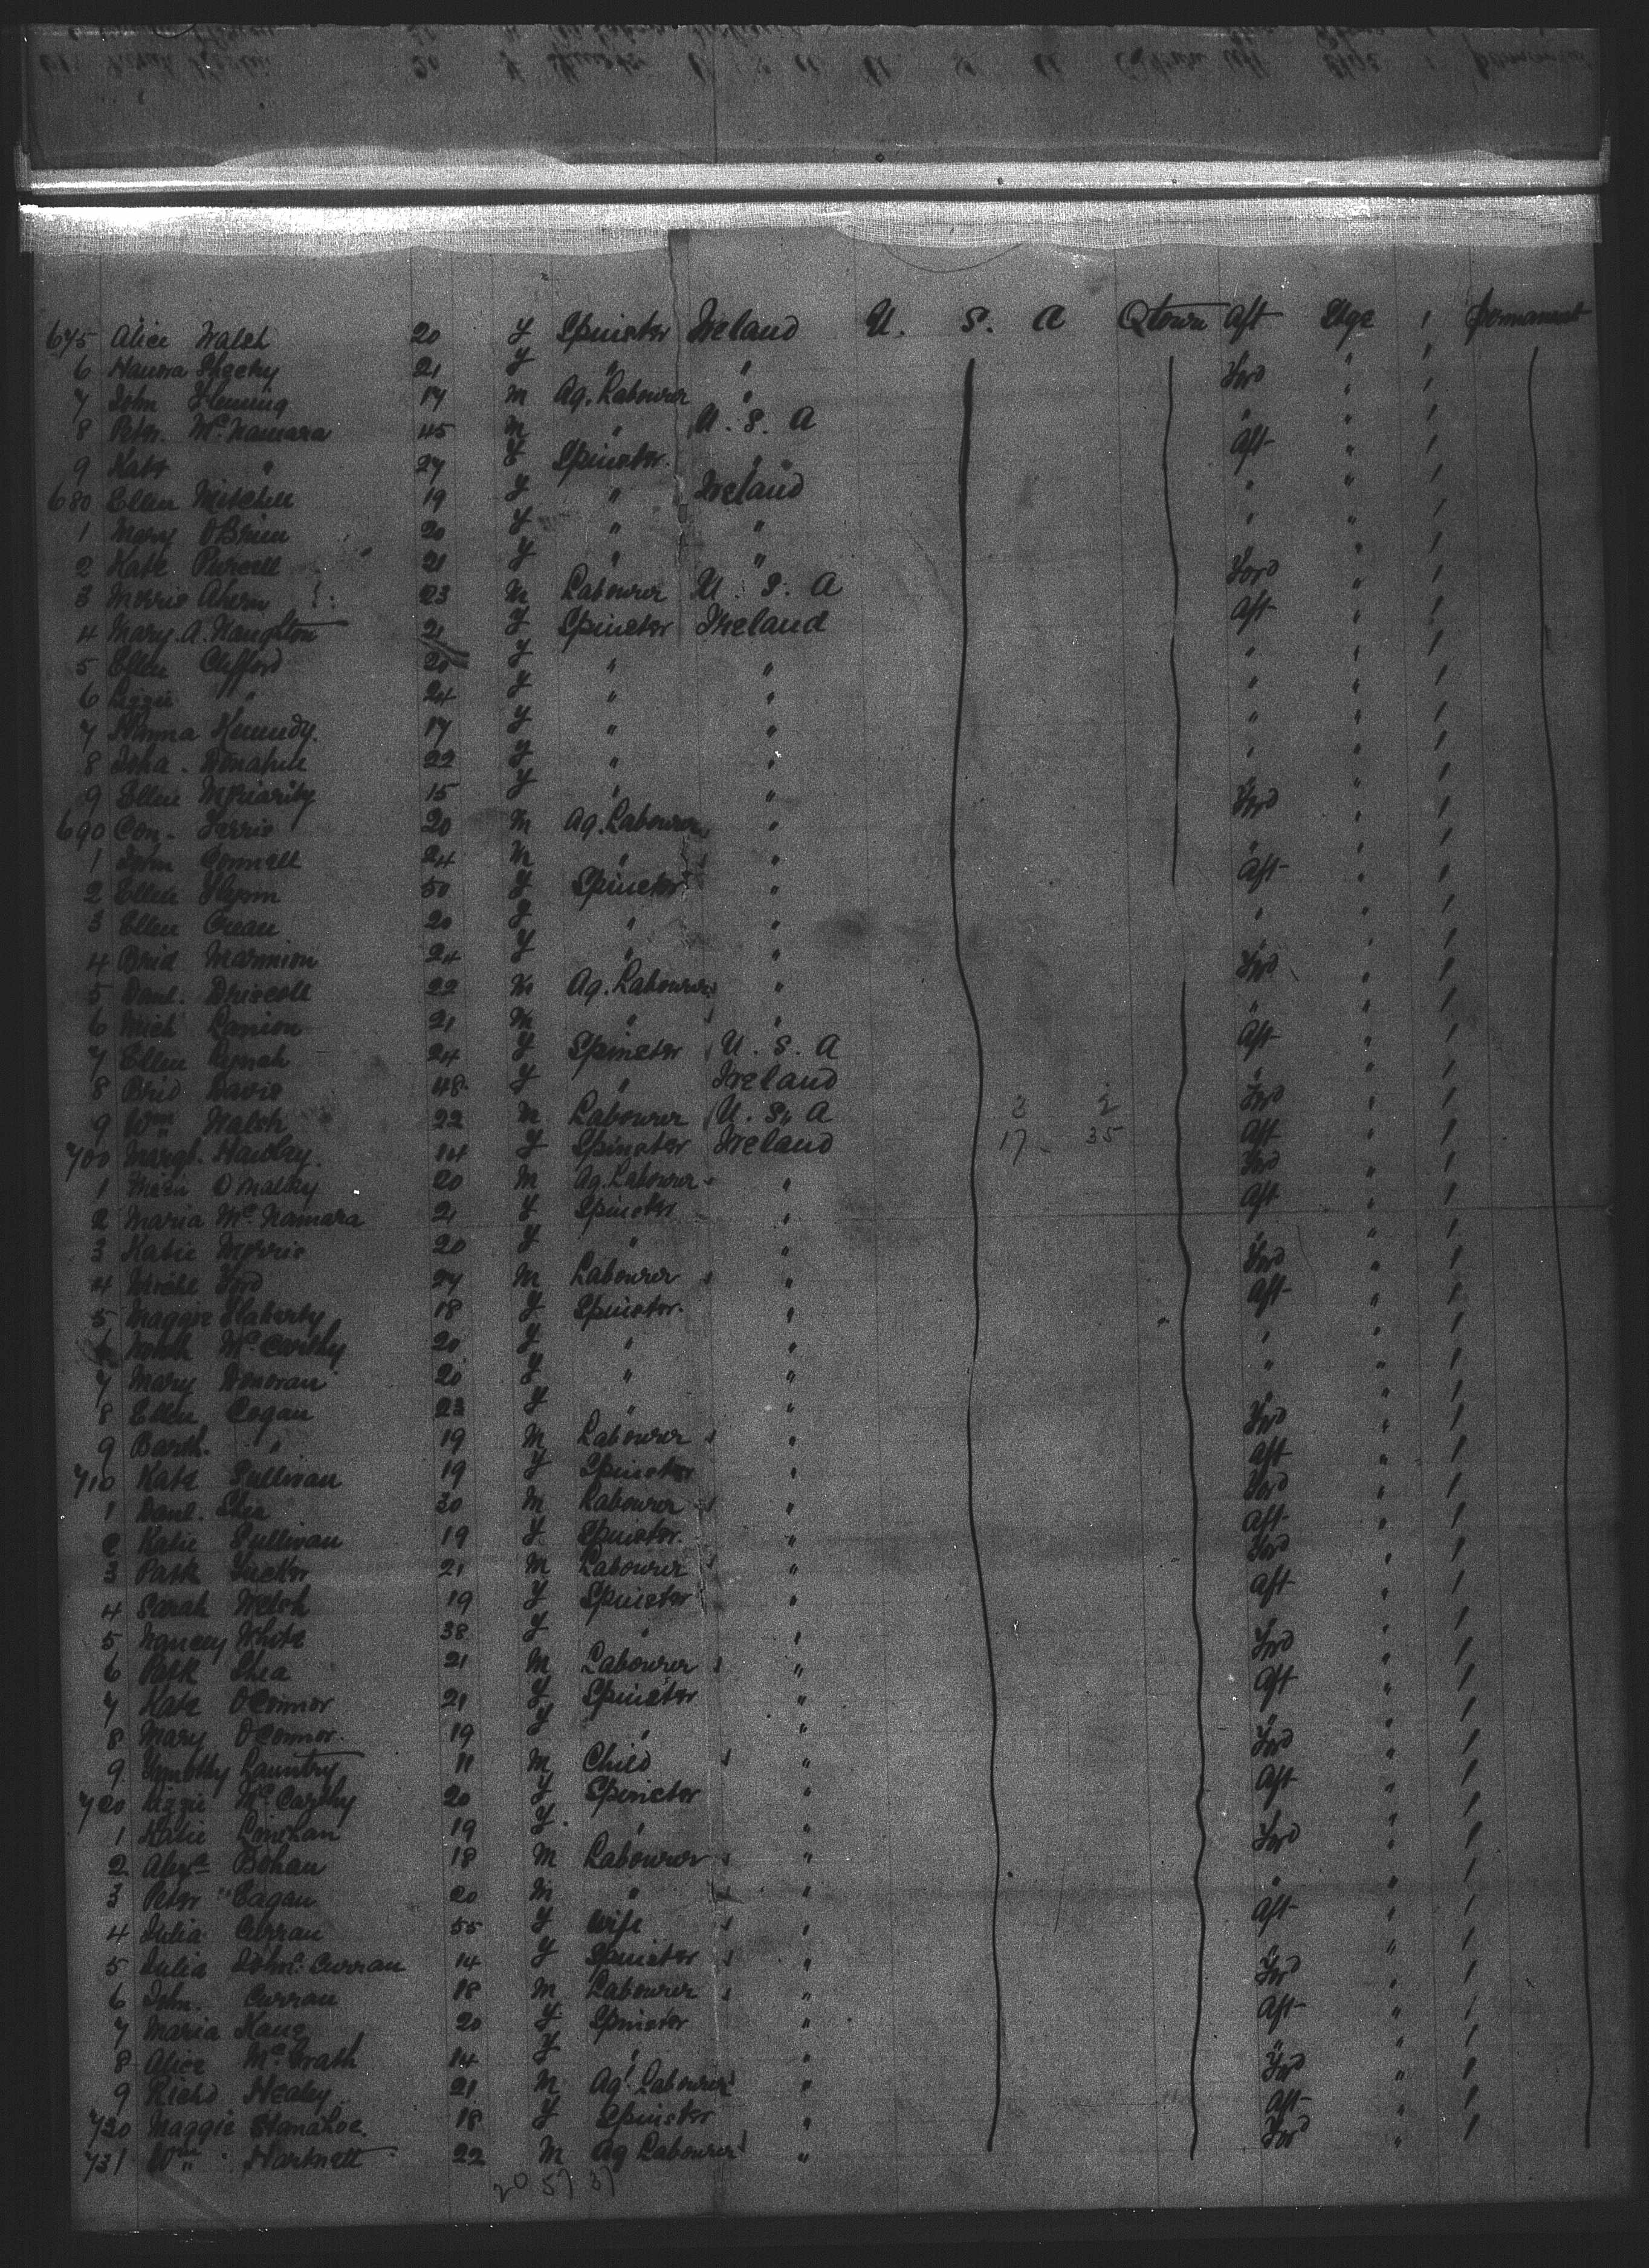 675 Alice Walsh 20 F Spinster Ireland U. S. A Qtown Aft Stge 1 permanent
6 Hanora Sheehy 21 F " " Ford " 1
7 John Fleming 17 M Ag. Labourer " " " 1
8 Peter McNamara 45 M " U. S. A Aft " 1
9 Kate " 27 F Spinster " " " 1
680 Ellen Mitchell 19 F " Ireland " " 1
1 Mary OBrien 20 F " " " " 1
2 Kate Purcell 21 F " " Ford " 1
3 Morris Ahern 23 M Labourer U. S. A Aft " 1
4 Mary. A. Naughton 21 F Spinster Ireland " " 1
5 Ellen Clifford 20 F " " " " 1
6 Lizzie " 24 F " " " " 1
7 Kennedy. 17 F " " " " 1
8 Joha. Donahue 22 F " " " " 1
9 Ellen Moriarity 15 F " " Ford " 1
690 Con. Ferris 20 M Ag. Labourer " " " 1
1 John Connell 24 M " " Aft " 1
2 Ellen Flynn 50 F Spinster " " " 1
3 Ellen Crean 20 F " " " " 1
4 Brid Mannion 24 F " " Ford " 1
5 Danl. Driscoll 22 M Ag. Labourer " " " 1
6 Mich Lanion 21 M " " Aft " 1
7 Ellen Lynah 24 F Spinster U. S. A " " 1
8 Brid Davis 48 F " Ireland Ford " 1
9 Wm Walsh 22 M Labourer U. S. A 3 2 Aft " 1
700 Margt. Hawley. 14 F Spinster Ireland 17 - 35 Ford " 1
1 OMalley 20 M Ag. Labourer " Aft " 1
2 Maria McNamara 21 F Spinster " " " 1
3 Katie Morris 20 F " " Ford " 1
4 Michl Ford 27 M Labourer " Aft " 1
5 Maggie Flaherty 18 F Spinster. " " " 1
6 Norah McCarthy 20 F " " " " 1
7 Mary Donovan 20 F " " " " 1
8 Ellen Cogan 23 F " " Ford " 1
9 Barth. " 19 M Labourer " Aft " 1
710 Kate Sullivan 19 F Spinster " Ford " 1
1 Danl. Shea 30 M Labourer " Aft " 1
2 Katie Sullivan 19 F Spinster. " Ford " 1
3 Patk Tucker 21 M Labourer " Aft " 1
4 Sarah Welsh 19 F Spinster " " 1
5 Nancy White 38 F " " Ford " 1
6 Patk Shea 21 M Labourer " Aft " 1
7 Kate OConnor 21 F Spinster " " " 1
8 Mary OConnor. 19 F " " Ford " 1
9 Tymothy Launtry 11 M Child " Aft " 1
720 Lizzie McCarthy 20 F Spinster " " 1
1 Katie Linehan 19 F. " " Ford " 1
2 Alexr Bohan 18 M Labourer " " " 1
3 Peter Eagan 20 M " " Aft " 1
4 Julia Curran 55 F Wife " " " 1
5 Julia Curran 14 F Spinster " Ford " 1
6 John. Curran 18 M Labourer " Aft " 1
7 Maria Kane 20 F Spinster " " " 1
8 Alice McGrath 14 F " " Ford " 1
9 Richd Healey 21 M Ag. Labourer " Aft " 1
730 Maggie Hanahoe. 18 F Spinster " Ford " 1
731 Wm Hartnett 22 M Ag Labourer " "
20 57 37